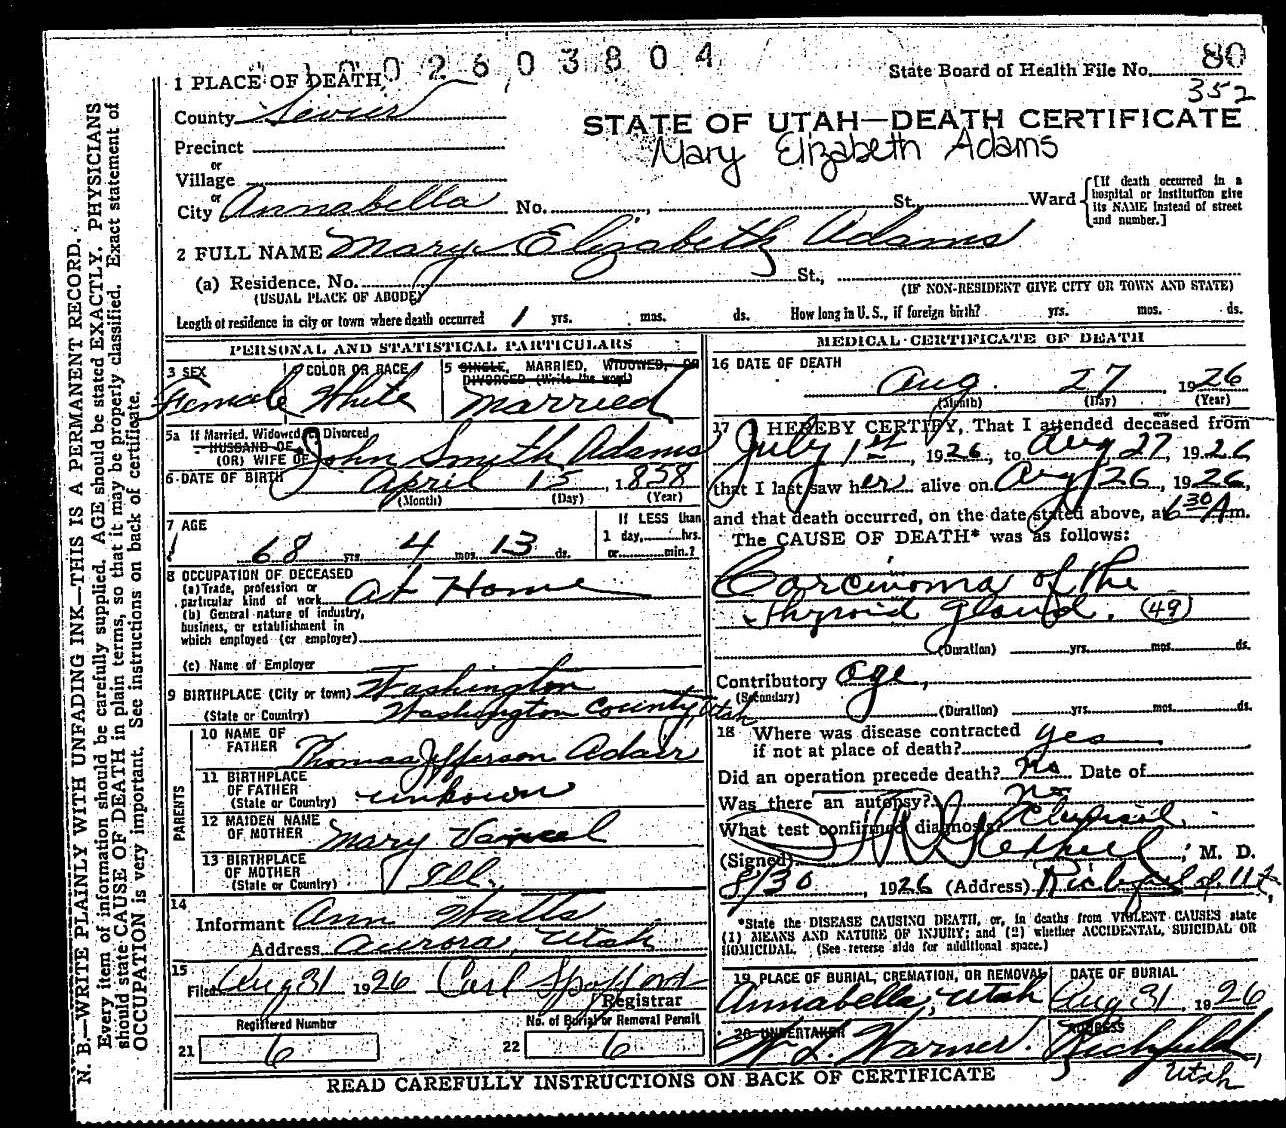 1002603804
State Board of Health File No. 80
352
1 PLACE OF DEATH
County Sevier
STATE OF UTAH—DEATH CERTIFICATE
Mary Elizabeth Adams
Precinct
or
Village
or
City Annabella No. , St., Ward
[If death occurred in a hospital or institution give its NAME instead of street and number.]
2 FULL NAME Mary Elizabeth Adams
(a) Residence. No. St.,
(USUAL PLACE OF ABODE) (IF NON-RESIDENT GIVE CITY OR TOWN AND STATE)
Length of residence in city or town where death occurred 1 yrs. mos. ds. How long in U. S., if foreign birth? yrs. mos. ds.
PERSONAL AND STATISTICAL PARTICULARS
3 SEX Female
COLOR OR RACE White
5 SINGLE, MARRIED, WIDOWED, OR DIVORCED (Write the word)
Married
5a If Married, Widowed or Divorced
HUSBAND OF
(OR) WIFE OF John Smith Adams
6 DATE OF BIRTH April 15, 1858
(Month) (Day) (Year)
7 AGE
68 yrs. 4 mos. 13 ds.
If LESS than
1 day, hrs.
or min.?
8 OCCUPATION OF DECEASED
(a) Trade, profession or
particular kind of work At Home
(b) General nature of industry,
business, or establishment in
which employed (or employer)
(c) Name of Employer
9 BIRTHPLACE (City or town) Washington
(State or Country) Washington County, Utah
PARENTS
10 NAME OF FATHER Thomas Jefferson Adair
11 BIRTHPLACE OF FATHER
(State or Country) unkown
12 MAIDEN NAME OF MOTHER Mary
13 BIRTHPLACE OF MOTHER
(State or Country) Ill.
14
Informant Ann Watts
Address Aurora, Utah
15
Filed Aug 31 1926 Carl Spafford
Registrar
Registered Number
21 6
No. of Burial or Removal Permit
22 6
MEDICAL CERTIFICATE OF DEATH
16 DATE OF DEATH
Aug. 27 1926
(Month) (Day) (Year)
17 I HEREBY CERTIFY, That I attended deceased from
July 1st, 1926, to Aug 27, 1926
that I last saw her alive on Aug 26, 1926,
and that death occurred, on the date stated above, at 6 30 A m.
The CAUSE OF DEATH* was as follows:
Carcinoma of the
Thyroid gland. (49)
(Duration) yrs. mos. ds.
Contributory age,
(Secondary)
(Duration) yrs. mos. ds.
18 Where was disease contracted
if not at place of death? yes
Did an operation precede death? No Date of
Was there an autopsy? no
What test confirmed diagnosis? Clinical
(Signed) , M. D.
8/30, 1926 (Address) Richfield, Ut,
*State the DISEASE CAUSING DEATH, or, in deaths from VIOLENT CAUSES state
(1) MEANS AND NATURE OF INJURY; and (2) whether ACCIDENTAL, SUICIDAL OR
HOMICIDAL. (See reverse side for additional space.)
19 PLACE OF BURIAL, CREMATION, OR REMOVAL
Annabella, Utah
DATE OF BURIAL
Aug 31 1926
20 UNDERTAKER
N. L. Warner.
ADDRESS
Richfield,
Utah
READ CAREFULLY INSTRUCTIONS ON BACK OF CERTIFICATE
N. B.—WRITE PLAINLY WITH UNFADING INK—THIS IS A PERMANENT RECORD.
Every item of information should be carefully supplied. AGE should be stated EXACTLY. PHYSICIANS
should state CAUSE OF DEATH in plain terms, so that it may be properly classified. Exact statement of
OCCUPATION is very important. See instructions on back of certificate.